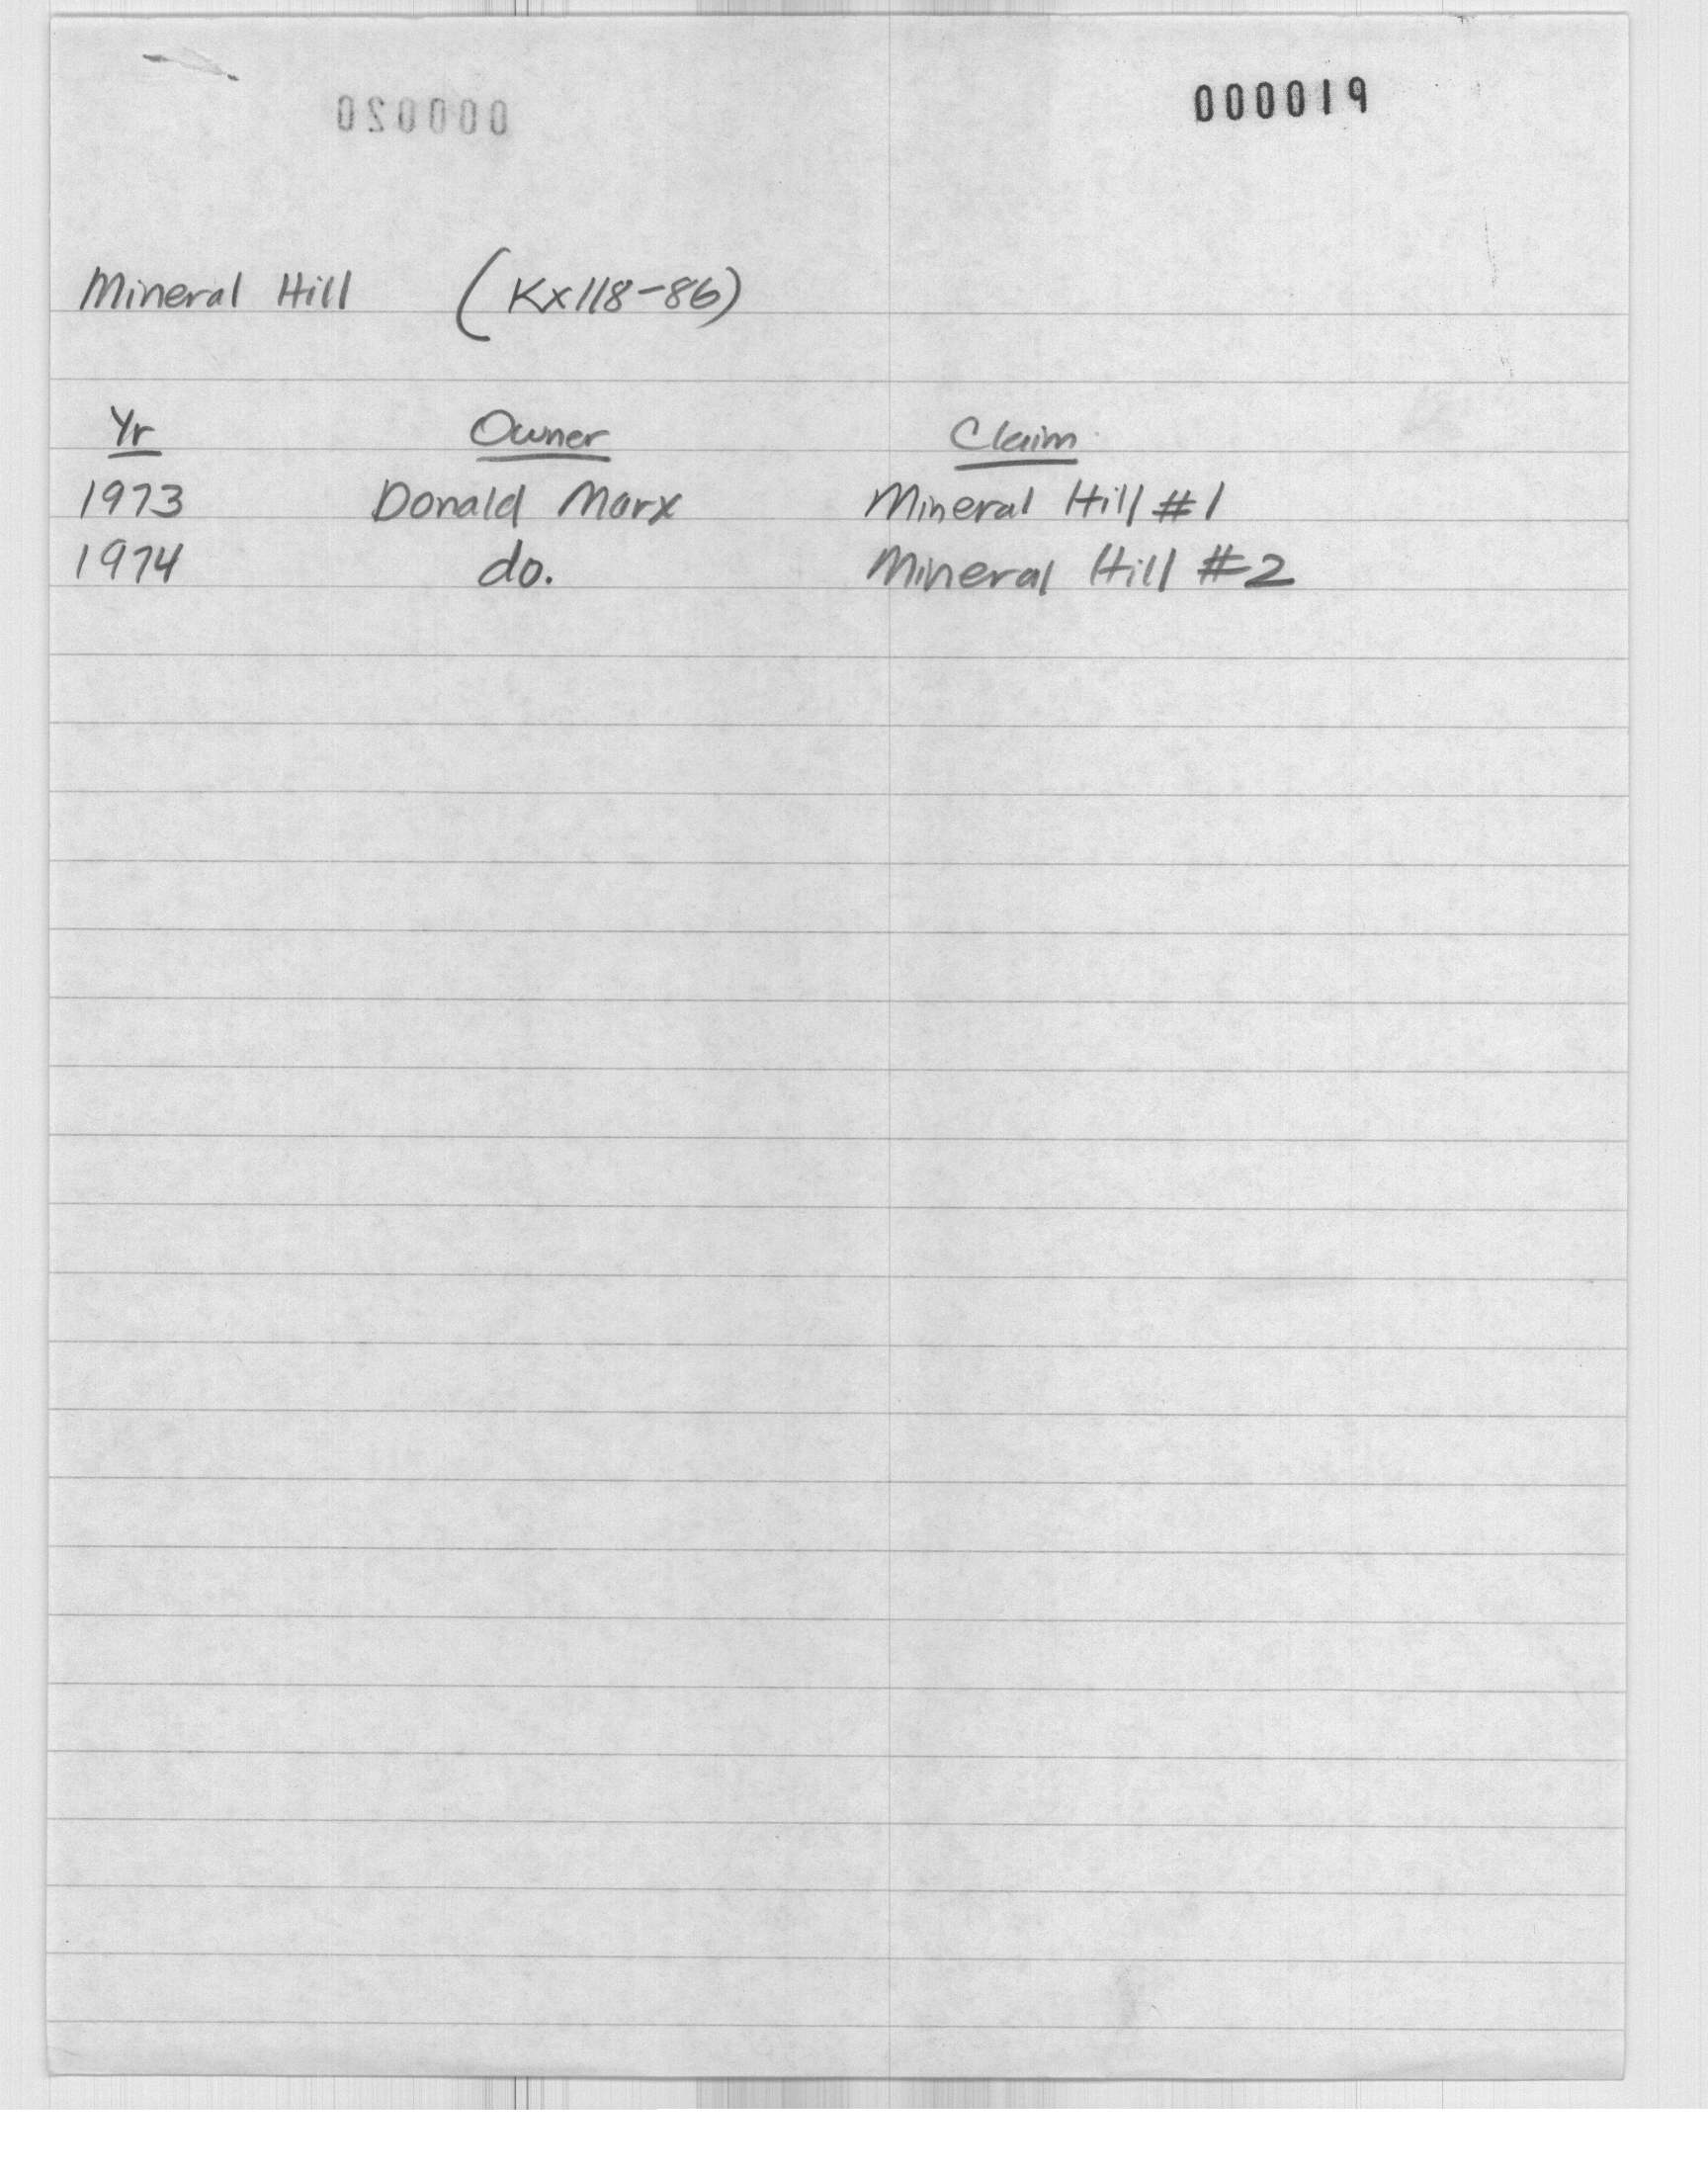 000020 000019
Mineral Hill (Kx118-86)
Yr Owner Claim
1973 Donald Marx Mineral Hill #1
1974 do. Mineral Hill #2